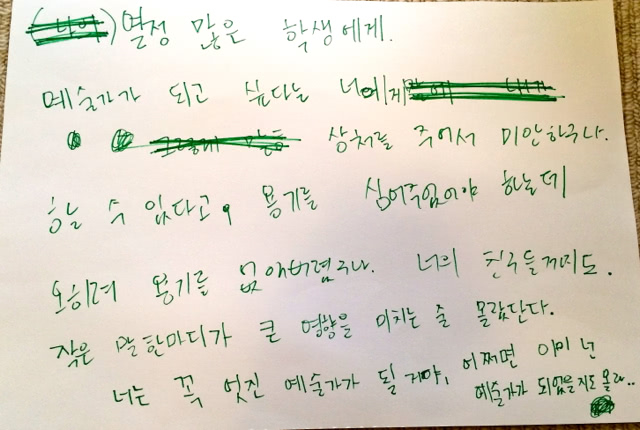 (나의) 열정 많은 학생에게.
예술가가 되고 싶다는 너에게
상처를 주어서 미안하구나.
할 수 있다고, 용기를 심어주었어야 하는데
오히려 용기를 없애버렸구나. 너의 친구들까지도.
작은 말 한마디가 큰 영향을 미치는 줄 몰랐단다.
너는 꼭 멋진 예술가가 될 거야, 어쩌면 이미 넌
예술가가 되었을지도 몰라..